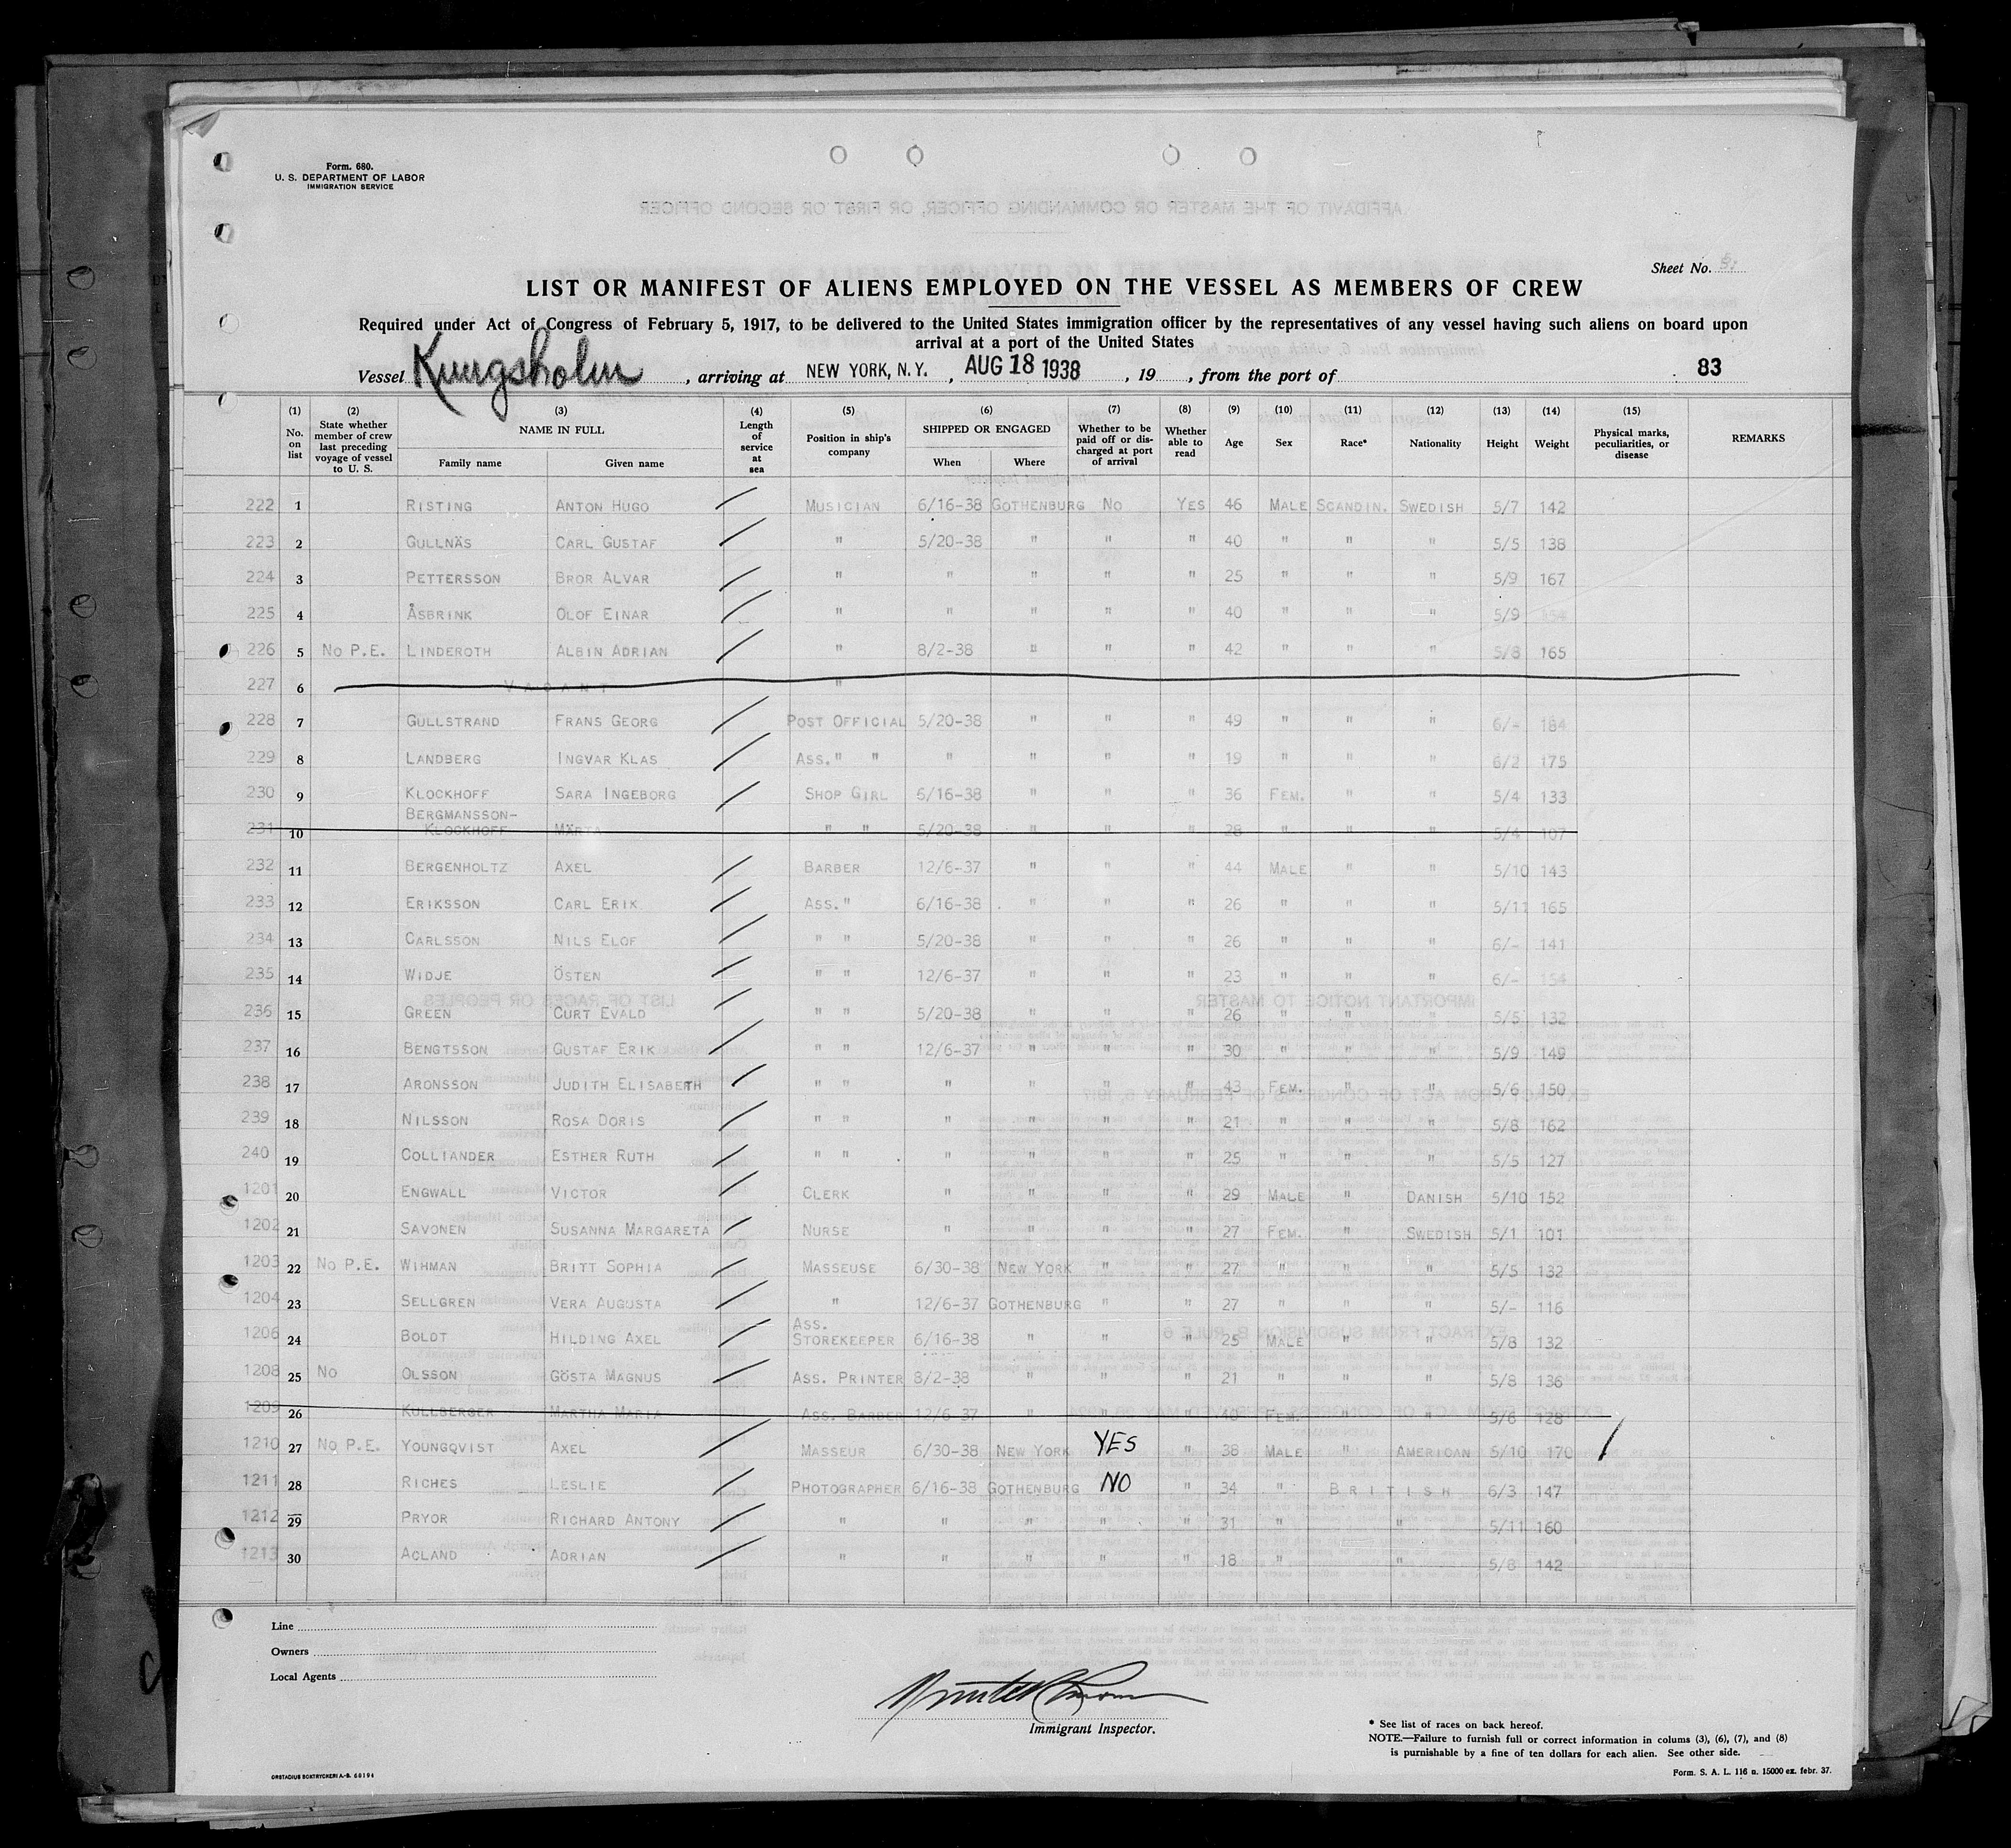 Form. 680.
U. S. DEPARTMENT OF LABOR
IMMIGRATION SERVICE
Sheet No.
LIST OR MANIFEST OF ALIENS EMPLOYED ON THE VESSEL AS MEMBERS OF CREW
Required under Act of Congress of February 5, 1917, to be delivered to the United States immigration officer by the representatives of any vessel having such aliens on board upon
arrival at a port of the United States
Vessel Kungsholm, arriving at NEW YORK, N.Y., AUG 18 1938, 19, from the port of 83
(1) No. on list (2) State whether member of crew last preceding voyage of vessel to U. S. (3) NAME IN FULL Family name Given name (4) Length of service at sea (5) Position in ship's company (6) SHIPPED OR ENGAGED When Where (7) Whether to be paid off or discharged at port of arrival (8) Whether able to read (9) Age (10) Sex (11) Race* (12) Nationality (13) Height (14) Weight (15) Physical marks, peculiarities, or disease REMARKS
222 1 RISTING ANTON HUGO MUSICIAN 6/16-38 GOTHENBURG NO YES 46 MALE SCANDIN. SWEDISH 5/7 142
223 2 GULLNÄS CARL GUSTAF " 5/20-38 " " " 40 " " " 5/5 138
224 3 PETTERSSON BROR ALVAR " " " " " 25 " " " 5/9 167
225 4 ÅSBRINK OLOF EINAR " " " " " 40 " " " 5/9
226 5 NO P.E. LINDEROTH ALBIN ADRIAN " 8/2-38 " " " 42 " " " 5/8 165
227 6 VACANT "
228 7 GULLSTRAND FRANS GEORG POST OFFICIAL 5/20-38 " " " 49 " " " 6/- 184
229 8 LANDBERG INGVAR KLAS ASS. " " " " " " 19 " " " 6/2 175
230 9 KLOCKHOFF SARA INGEBORG SHOP GIRL 6/16-38 " " " 36 FEM. " " 5/4 133
231 10 BERGMANSSON-KLOCKHOFF MÄRTA " " 5/20-38 " " " 28 " " " 5/4 107
232 11 BERGENHOLTZ AXEL BARBER 12/6-37 " " " 44 MALE " " 5/10 143
233 12 ERIKSSON CARL ERIK ASS. " 6/16-38 " " " 26 " " " 5/11 165
234 13 CARLSSON NILS ELOF " " 5/20-38 " " " 26 " " " 6/- 141
235 14 WIDJE ÖSTEN " " 12/6-37 " " " 23 " " " 6/- 154
236 15 GREEN CURT EVALD " " 5/20-38 " " " 26 " " " 5/5 132
237 16 BENGTSSON GUSTAF ERIK " " 12/6-37 " " " 30 " " " 5/9 149
238 17 ARONSSON JUDITH ELISABETH " " " " " " 43 FEM. " " 5/6 150
239 18 NILSSON ROSA DORIS " " " " " " 21 " " " 5/8 162
240 19 COLLIANDER ESTHER RUTH " " " " " " 25 " " " 5/5 127
1201 20 ENGWALL VICTOR CLERK " " " " 29 MALE " DANISH 5/10 152
1202 21 SAVONEN SUSANNA MARGARETA NURSE " " " " 27 FEM. " SWEDISH 5/1 101
1203 22 NO P.E. WIHMAN BRITT SOPHIA MASSEUSE 6/30-38 NEW YORK " " 27 " " " 5/5 132
1204 23 SELLGREN VERA AUGUSTA " 12/6-37 GOTHENBURG " " 27 " " " 5/- 116
1206 24 BOLDT HILDING AXEL ASS. STOREKEEPER 6/16-38 " " " 25 MALE " " 5/8 132
1208 25 NO OLSSON GÖSTA MAGNUS ASS. PRINTER 8/2-38 " " " 21 " " " 5/8 136
1209 26 KULLBERGER MARTHA MARIA ASS. BARBER 12/6-37 " " " 40 FEM. " " 5/6 128
1210 27 NO P.E. YOUNGQVIST AXEL MASSEUR 6/30-38 NEW YORK YES " 38 MALE " AMERICAN 5/10 170
1211 28 RICHES LESLIE PHOTOGRAPHER 6/16-38 GOTHENBURG NO " 34 " BRITISH 6/3 147
1212 29 PRYOR RICHARD ANTONY " " " " " 31 " " 5/11 160
1213 30 ACLAND ADRIAN " " " " " 18 " " 5/8 142
Line
Owners
Local Agents
Immigrant Inspector.
* See list of races on back hereof.
NOTE.—Failure to furnish full or correct information in colums (3), (6), (7), and (8)
is purnishable by a fine of ten dollars for each alien. See other side.
ORSTADIUS BOKTRYCKERI A.-B. 66194
Form. S. A. L. 116 n. 15000 ex. febr. 37.